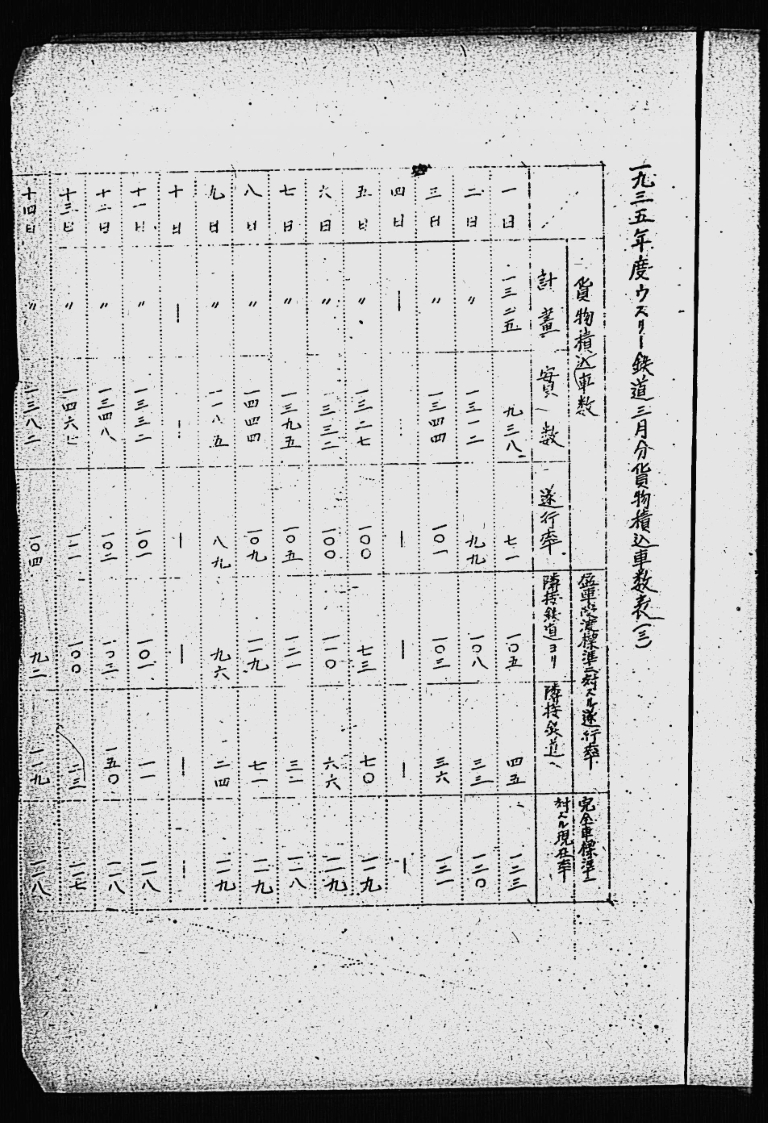 一九三五年度ウスリー鉄道三月分貨物積込車数表(三)
貨物積込車数
計畫
實数
遂行率
空車受渡標準ニ対スル遂行率
隣接鉄道ヨリ
隣接鉄道ヘ
完全車標準ニ
対スル現在率
一日 一三二五 九三八 七一 一〇五 四五 一二三
二日 〃 一三一二 九九 一〇八 三三 一二〇
三日 〃 一三四四 一〇一 一〇三 三六 一二一
四日 — — — — — —
五日 〃 一三二七 一〇〇 七三 七〇 一一九
六日 〃 一三三二 一〇〇 一一〇 六六 一一九
七日 〃 一三九五 一〇五 一二一 三二 一一八
八日 〃 一四四四 一〇九 一一九 七一 一一九
九日 〃 一一八五 八九 九六 二四 一一九
十日 — — — — — —
十一日 〃 一三三二 一〇一 一〇一 一一 一一八
十二日 〃 一三四八 一〇二 一〇三 一五〇 一一八
十三日 〃 一四六七 一一一 一〇〇 二三 一一七
十四日 〃 一三八二 一〇四 九二 一一九 一一八